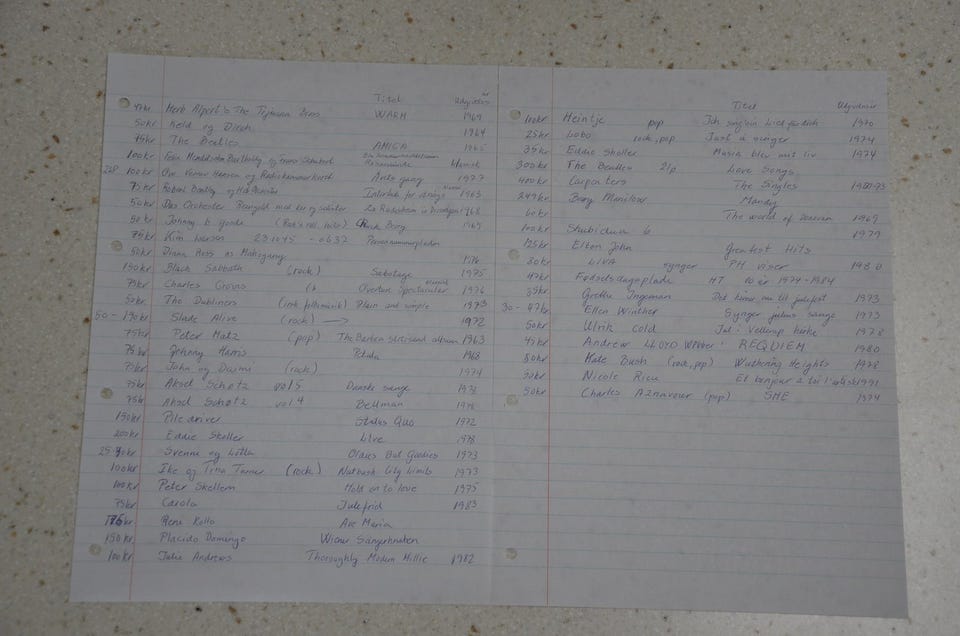 Titel
år
Udgivelses
Herb Alpert's The Tijuana Brass WARM 1969
50kr Keld og 1964
75kr The Beatles AMIGA 1965
100kr Felix Mendelssohn Bartholdy og Franz Schubert
100kr Ove Verner Hansen og Radiokammerkoret Årets gang 1977
75kr Robert Bentley og His Interlude for strings 1963
50kr Das Orchester med kor og solister 1968
50kr Johnny b. goode (Rock'n roll hits) Chuck Berry 1969
75kr Kim Larsen 231045 - 0637
50kr Diana Ross as Mahogany
150kr Black Sabbath (rock) Sabotage 1975
75kr Charles Overture Spectacular 1976
50kr The Dubliners (irsk folkmusik) Plain and simple 1973
50 - 190kr Slade Alive (rock) 1972
75kr Peter Matz (pop) The Barbra streisand album 1963
75kr Johnny Harris 1968
75kr John og (rock) 1974
75kr Aksel Schøtz vol 5 Danske sange
75kr Aksel Schøtz vol 4 Bellman
150kr Piledriver Status Quo 1972
200kr Eddie Skoller Live 1978
Svenne og Lotta Oldies But Goodies 1973
100kr Ike og Tina Turner (rock) Nutbush city limits 1973
100kr Peter Skellern Hold on to love 1975
75kr Carola Julefrid 1983
Rene Kollo Ave Maria
150kr Placido Domingo Wiener Sängerknaben
100kr Julie Andrews Thoroughly Modern Millie 1982
Titel Udgivelsesår
100kr Heintje pop Ich sing ein Lied für dich 1970
25kr Lobo rock, pop Just a singer 1974
35kr Eddie Skoller Musik blev mit liv 1974
300kr The Beatles 2lp Love Songs
400kr Carpenters The Singles
249kr Barry Manilow Mandy
60kr The world of Donovan 1969
100kr Shubidua 6 1979
125kr Elton John Greatest Hits
80kr LIVA synger PH viser 1980
45kr Fødselsdagsplade HT 10 år 1974-1984
35kr Grethe Ingeman Det kimer nu til julefest 1973
30 - 47kr Ellen Winther Synger julens sange 1973
50kr Ulrik Cold Jul i Vellerup kirke 1978
45kr Andrew LLOYD Webber REQUIEM 1980
80kr Kate Bush (rock, pop) Wuthering Heights 1978
Nicole Rieu Et bonjour à toi l'artiste
50kr Charles Aznavour (pop) SHE 1974